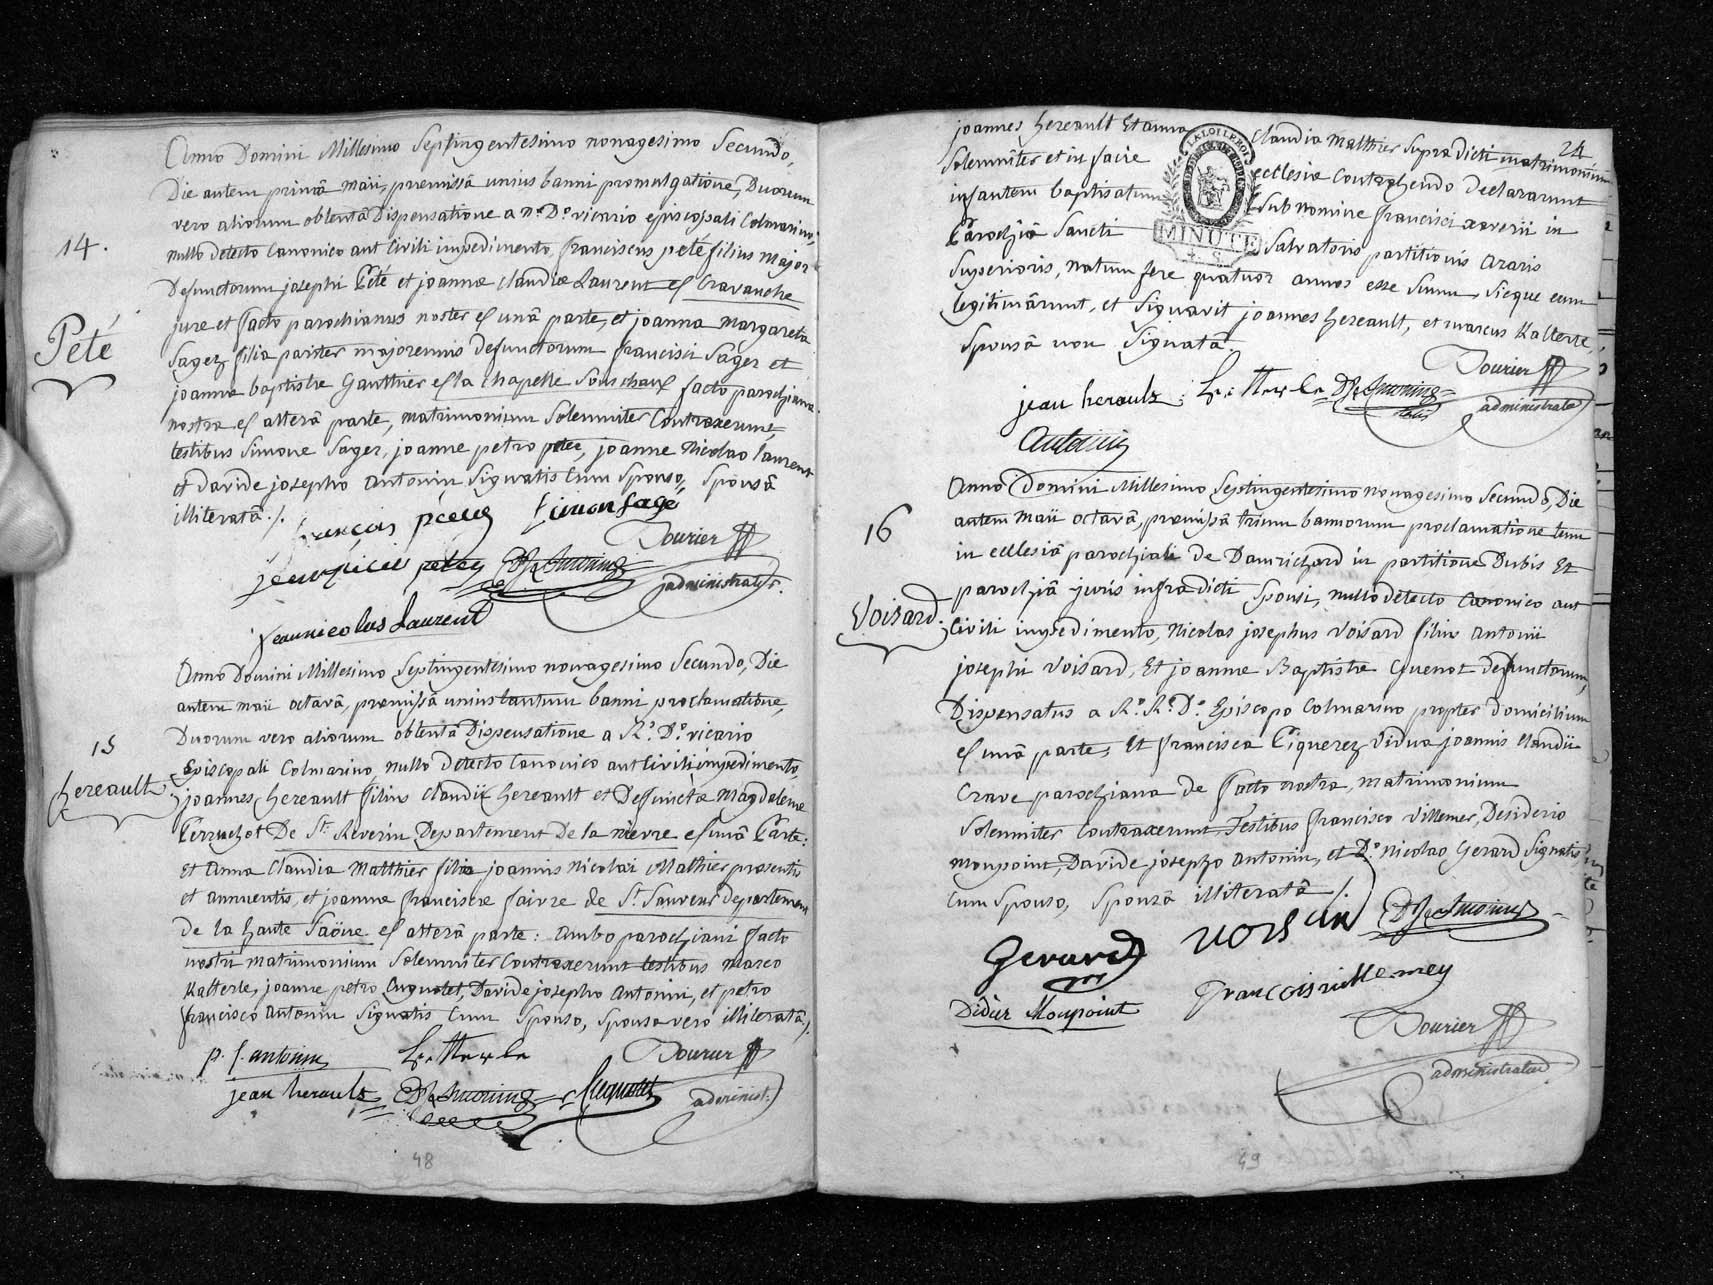 Anno Domini Millesimo Septingentesimo nonagesimo Secundo,
Die autem primâ maii, præmissâ unius banni promulgatione, Duorum
vero aliorum obtentâ Dispensatione a R.º D.º vicario episcopali Colmarino,
14.
nullo detecto Canonico aut Civili impedimento, franciscus peté filius major
Defunctorum josephi Peté et joannæ claudiæ Laurent ex Cravanche
jure et facto parochianus noster ex unâ parte, et joanna margareta
Peté
Sagez filia pariter majorennis defunctorum francisci Sager et
joannæ baptistæ Gautthier ex la chapelle Sous chaux facto parochiana
nostra ex alterâ parte, matrimonium Solemniter Contraxerunt,
testibus Simone Sager, joanne petro petey, joanne Nicolao laurent
et davide josepho antonin Signatis Cum Sponso, Sponsâ
illiteratâ ./.
françois petey Simon Sage
Dourier
jean petey
administrat.
jean nicolas Laurent
Anno Domini Millesimo Septingentesimo nonagesimo Secundo, Die
autem maii octavâ, præmissâ unius tantum banni proclamatione,
Duorum vero aliorum obtentâ Dispensatione a R.º D.º vicario
15
Episcopali Colmarino, nullo detecto Canonico aut Civili impedimento,
hereault
joannes hereault filius claudii hereault et Defunctæ Magdalenæ
Perruchot De St. Reverin Departement De la nievre ex unâ Parte:
Et Anna Claudia Matthier filia joannis Nicolai Mathier præsentis
et annuentis, et joannæ franciscæ faivre de St. Sauveur departement
de la haute Saône ex alterâ parte: ambo parochiani facto
nostri matrimonium Solemniter Contraxerunt testibus marco
Kalterte, joanne petro Cugnotet, Davide josepho antonin, et petro
francisco antonin Signatis Cum Sponso, Sponsa vero illiteratâ ./.
p. f. antonin Dourier
jean herault Cugnotet administ.
48
24
joannes hereault Et anna Claudia Matthier Supra dicti matrimonium
Solemniter et in facie ecclesiæ Contrahendo declararunt
infantem baptisatum Sub nomine francisci xaverii in
Parochiâ Sancti Salvatoris partitionis Araris
LA LOI LE ROI
MINUTE
4. S.
Superioris, natum fere quatuor annos esse Suum, Sicque eum
legitimârunt, et Signavit joannes hereault, et marcus Kalterte,
Sponsâ non Signatâ.
Dourier
jean herault administrat
antonin
Anno Domini Millesimo Septingentesimo nonagesimo Secundo, Die
16
autem maii octavâ, præmissâ trium bannorum proclamatione tum
in ecclesiâ parochiali de Damrichard in partitione Dubis Et
parochiâ juris infradicti Sponsi, nullo detecto Canonico aut
Voisard
Civili impedimento, Nicolas josephus Voisard filius Antonii
josephi Voisard, Et joannæ Baptistæ Guenot defunctorum,
Dispensatus a R.º R.º D.º Episcopo Colmarino propter domicilium
ex unâ parte; Et francisca Piquerez Vidua joannis claudii
Crave parochiana de facto nostra, matrimonium
Solemniter Contraxerunt, Testibus francisco Villemez, Desiderio
monpoint, Davide josepho antonin, et D.º Nicolao Gerard Signatis
Cum Sponso, Sponsâ illiteratâ ./.
Gerard voisard
Didier Monpoint françois villemey
Dourier
administrateur
49